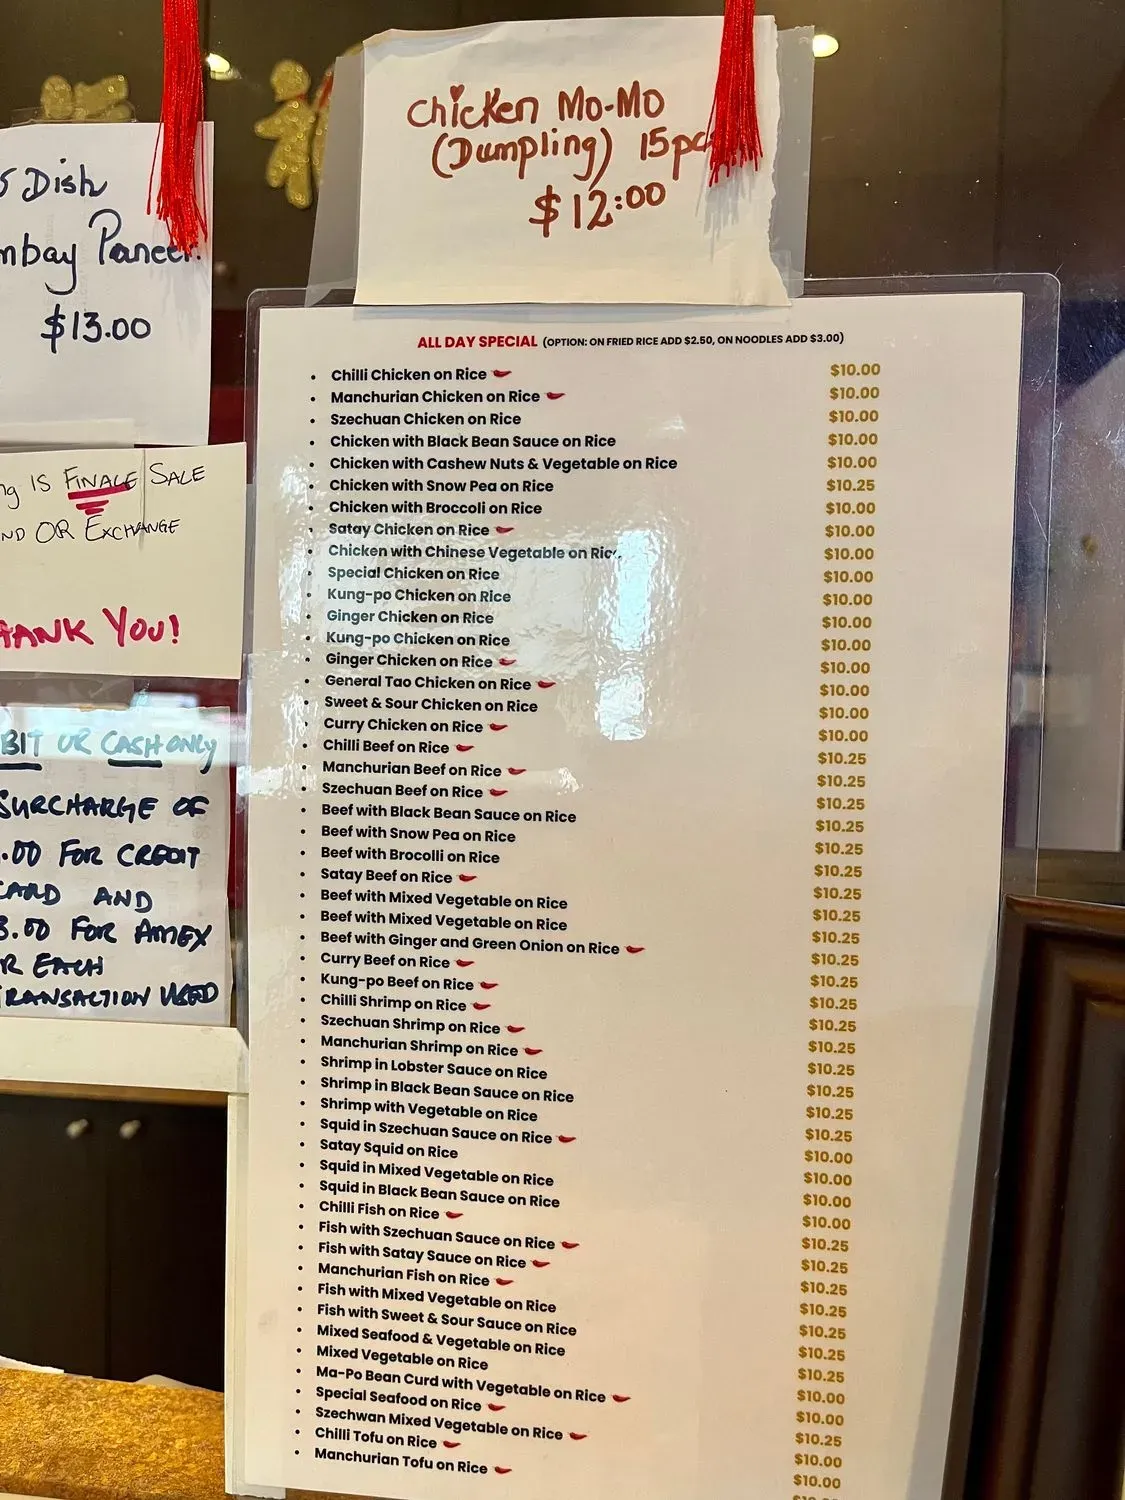 Dish
Paneer
$13.00
IS FINALE SALE
OR EXCHANGE
YOU!
OR CASH ONLY
SURCHARGE OF
FOR CREDIT
CARD AND
FOR AMEX
EACH
TRANSACTION USED
Chicken Mo-Mo
(Dumpling) 15pc
$12:00
ALL DAY SPECIAL (OPTION: ON FRIED RICE ADD $2.50, ON NOODLES ADD $3.00)
• Chilli Chicken on Rice $10.00
• Manchurian Chicken on Rice $10.00
• Szechuan Chicken on Rice $10.00
• Chicken with Black Bean Sauce on Rice $10.00
• Chicken with Cashew Nuts & Vegetable on Rice $10.00
• Chicken with Snow Pea on Rice $10.25
• Chicken with Broccoli on Rice $10.00
• Satay Chicken on Rice $10.00
• Chicken with Chinese Vegetable on Rice $10.00
• Special Chicken on Rice $10.00
• Kung-po Chicken on Rice $10.00
• Ginger Chicken on Rice $10.00
• Kung-po Chicken on Rice $10.00
• Ginger Chicken on Rice $10.00
• General Tao Chicken on Rice $10.00
• Sweet & Sour Chicken on Rice $10.00
• Curry Chicken on Rice $10.00
• Chilli Beef on Rice $10.25
• Manchurian Beef on Rice $10.25
• Szechuan Beef on Rice $10.25
• Beef with Black Bean Sauce on Rice $10.25
• Beef with Snow Pea on Rice $10.25
• Beef with Brocolli on Rice $10.25
• Satay Beef on Rice $10.25
• Beef with Mixed Vegetable on Rice $10.25
• Beef with Mixed Vegetable on Rice $10.25
• Beef with Ginger and Green Onion on Rice $10.25
• Curry Beef on Rice $10.25
• Kung-po Beef on Rice $10.25
• Chilli Shrimp on Rice $10.25
• Szechuan Shrimp on Rice $10.25
• Manchurian Shrimp on Rice $10.25
• Shrimp in Lobster Sauce on Rice $10.25
• Shrimp in Black Bean Sauce on Rice $10.25
• Shrimp with Vegetable on Rice $10.25
• Squid in Szechuan Sauce on Rice $10.00
• Satay Squid on Rice $10.00
• Squid in Mixed Vegetable on Rice $10.00
• Squid in Black Bean Sauce on Rice $10.00
• Chilli Fish on Rice $10.25
• Fish with Szechuan Sauce on Rice $10.25
• Fish with Satay Sauce on Rice $10.25
• Manchurian Fish on Rice $10.25
• Fish with Mixed Vegetable on Rice $10.25
• Fish with Sweet & Sour Sauce on Rice $10.25
• Mixed Seafood & Vegetable on Rice $10.25
• Mixed Vegetable on Rice $10.00
• Ma-Po Bean Curd with Vegetable on Rice $10.00
• Special Seafood on Rice $10.25
• Szechwan Mixed Vegetable on Rice $10.00
• Chilli Tofu on Rice $10.00
• Manchurian Tofu on Rice